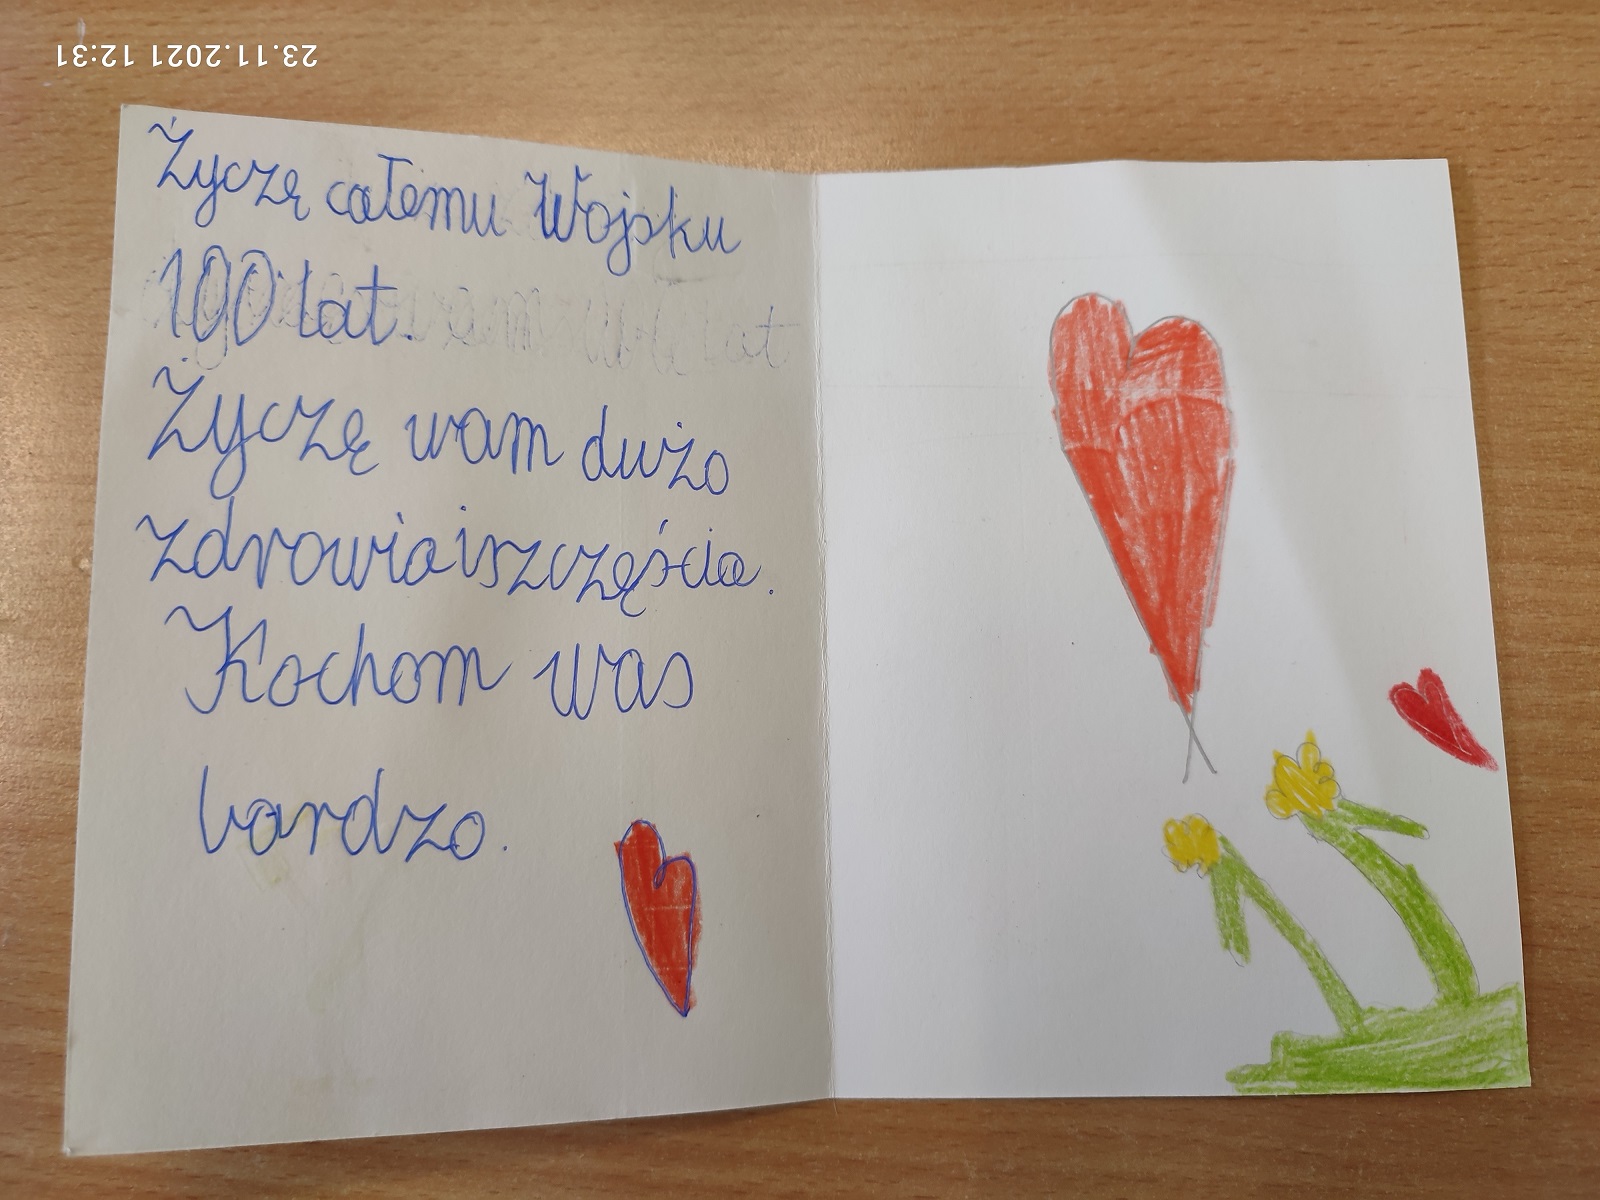 23.11.2021 12:31
Życzę całemu Wojsku
100 lat.
Życzę wam dużo
zdrowia i szczęścia.
Kocham was
bardzo.